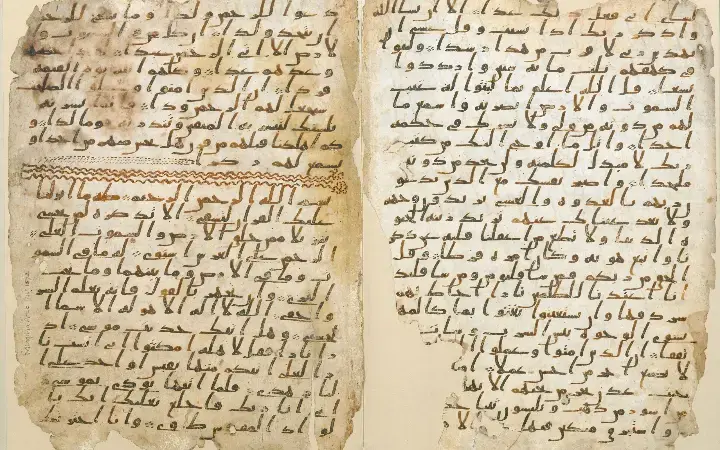 لشاي اني فعل ذلك غدا الا ان يشا الله
واذكر ربك اذا نسيت وقل عسى ان
يهدين ربي لاقرب من هذا رشدا ولبثوا
في كهفهم ثلث مائة سنين وازدادوا
تسعا قل الله اعلم بما لبثوا له غيب
السموت والارض ابصر به واسمع ما
لهم من دونه من ولي ولا يشرك في حكمه
احدا واتل ما اوحي اليك من كتب
ربك لا مبدل لكلمته ولن تجد من دونه
ملتحدا واصبر نفسك مع الذين يدعون
ربهم بالغدوة والعشي يريدون وجهه
ولا تعد عينك عنهم تريد زينة الحيو
ة الدنيا ولا تطع من اغفلنا قلبه عن ذكر
نا واتبع هويه وكان امره فرطا وقل
الحق من ربكم فمن شا فليومن ومن شا فليكفر
انا اعتدنا للظلمين نارا احاط بهم
سردقها وان يستغيثوا يغثوا بما كالمهل
يشوي الوجوه بئس الشرب وسات
مرتفقا ان الذين امنوا وعملوا
لا نضيع اجر من احسن عملا
جنت عدن تجري من تحتهم الانهر
من اساور من ذهب ويلبسون ثيابا
واستبرق متكين فيها
دعوا للرحمن ولدا وما ينبغي للرحمن
ان يتخذ ولدا ان كل من في السموت و
الارض الا اتي الرحمن عبدا لقد احصهم
وعدهم عدا وكلهم اتيه يوم القيمة
فردا ان الذين امنوا وعملوا الصلحت
سيجعل لهم الرحمن ودا فانما يسرنه
بلسنك لتبشر به المتقين وتنذر به قوما لدا و
كم اهلكنا قبلهم من قرن هل تحس منهم من احد او
تسمع لهم ركزا
بسم الله الرحمن الرحيم طه ما انزلنا
عليك القران لتشقى الا تذكرة لمن يخشى
تنزيلا ممن خلق الارض والسموت العلى
الرحمن على العرش استوى له ما في السمو
ت وما في الارض وما بينهما وما تحت
الثرى وان تجهر بالقول فانه يعلم السر
واخفى الله لا اله الا هو له الاسما
الحسنى وهل اتيك حديث موسى اذ
را نارا فقال لاهله امكثوا اني انست نا
را لعلي اتيكم منها بقبس او اجد على ا
لنار هدى فلما اتيها نودي يموسى
اني انا ربك فاخلع نعليك انك با
لواد المقدس طوى وانا اخترتك